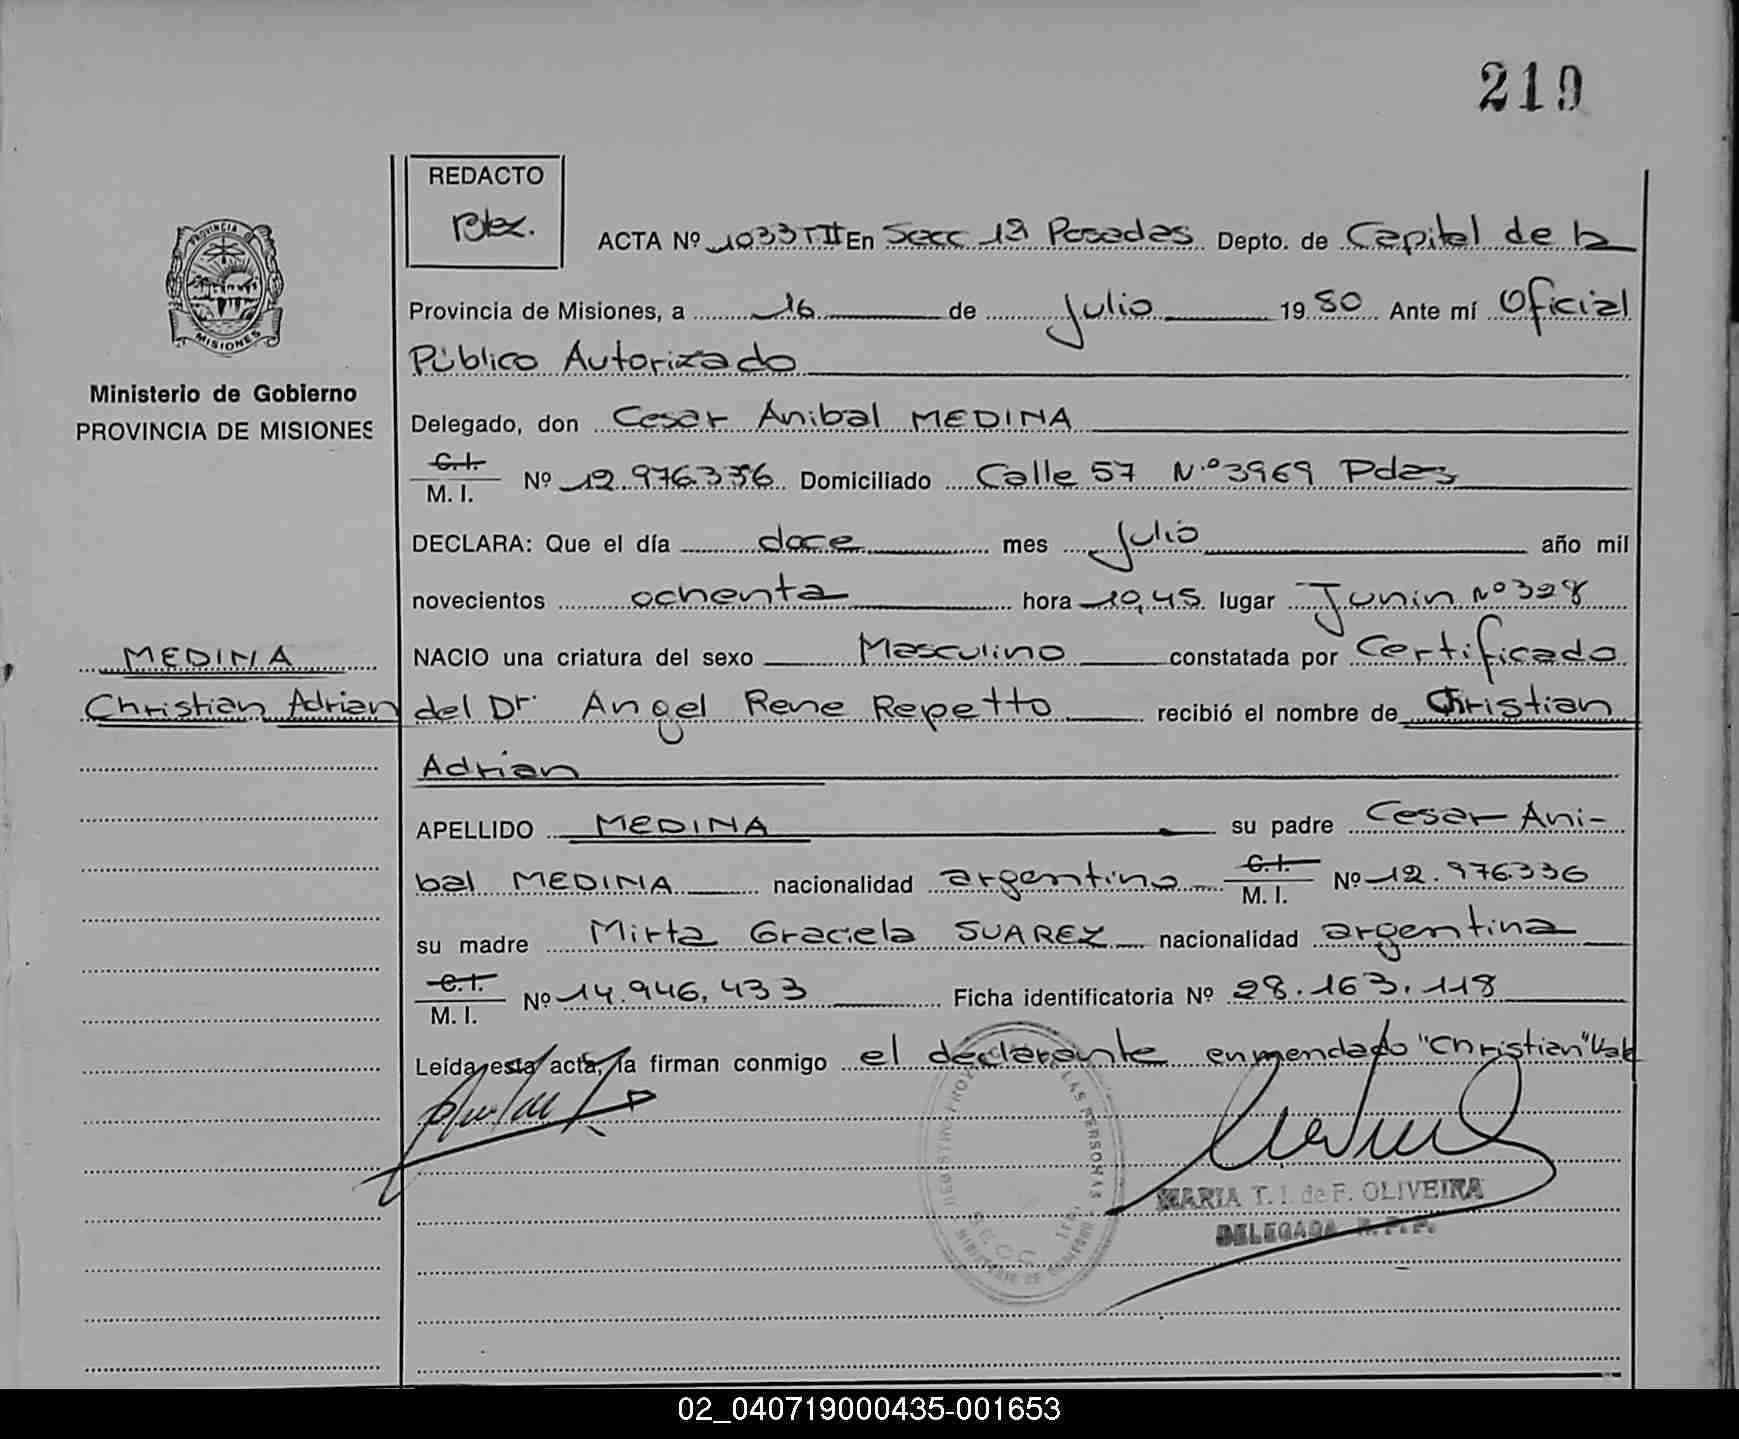 219
REDACTO
ACTA Nº 1033 TII En Secc 1ª Posadas Depto. de Capital de la
PROVINCIA DE MISIONES
Provincia de Misiones, a 16 de Julio 1980 Ante mí Oficial
Público Autorizado
Ministerio de Gobierno
PROVINCIA DE MISIONES
Delegado, don Cesar Anibal MEDINA
C.I.
M. I. Nº 12.976.336 Domiciliado Calle 57 Nº 3969 Pdas
DECLARA: Que el día doce mes Julio año mil
novecientos ochenta hora 10,45 lugar Junin Nº 328
MEDINA
NACIO una criatura del sexo Masculino constatada por Certificado
Christian Adrian
del Dr. Angel Rene Repetto recibió el nombre de Christian
Adrian
APELLIDO MEDINA su padre Cesar Ani-
bal MEDINA nacionalidad argentino C.I. M. I. Nº 12.976336
su madre Mirta Graciela SUAREZ nacionalidad argentina
C.I.
M. I. Nº 14.946,433 Ficha identificatoria Nº 28.163.118
Leída esta acta, la firman conmigo el declarante enmendado "Christian" Vale
MARIA T. I. de F. OLIVEIRA
DELEGADA R.P.P.
02_040719000435-001653